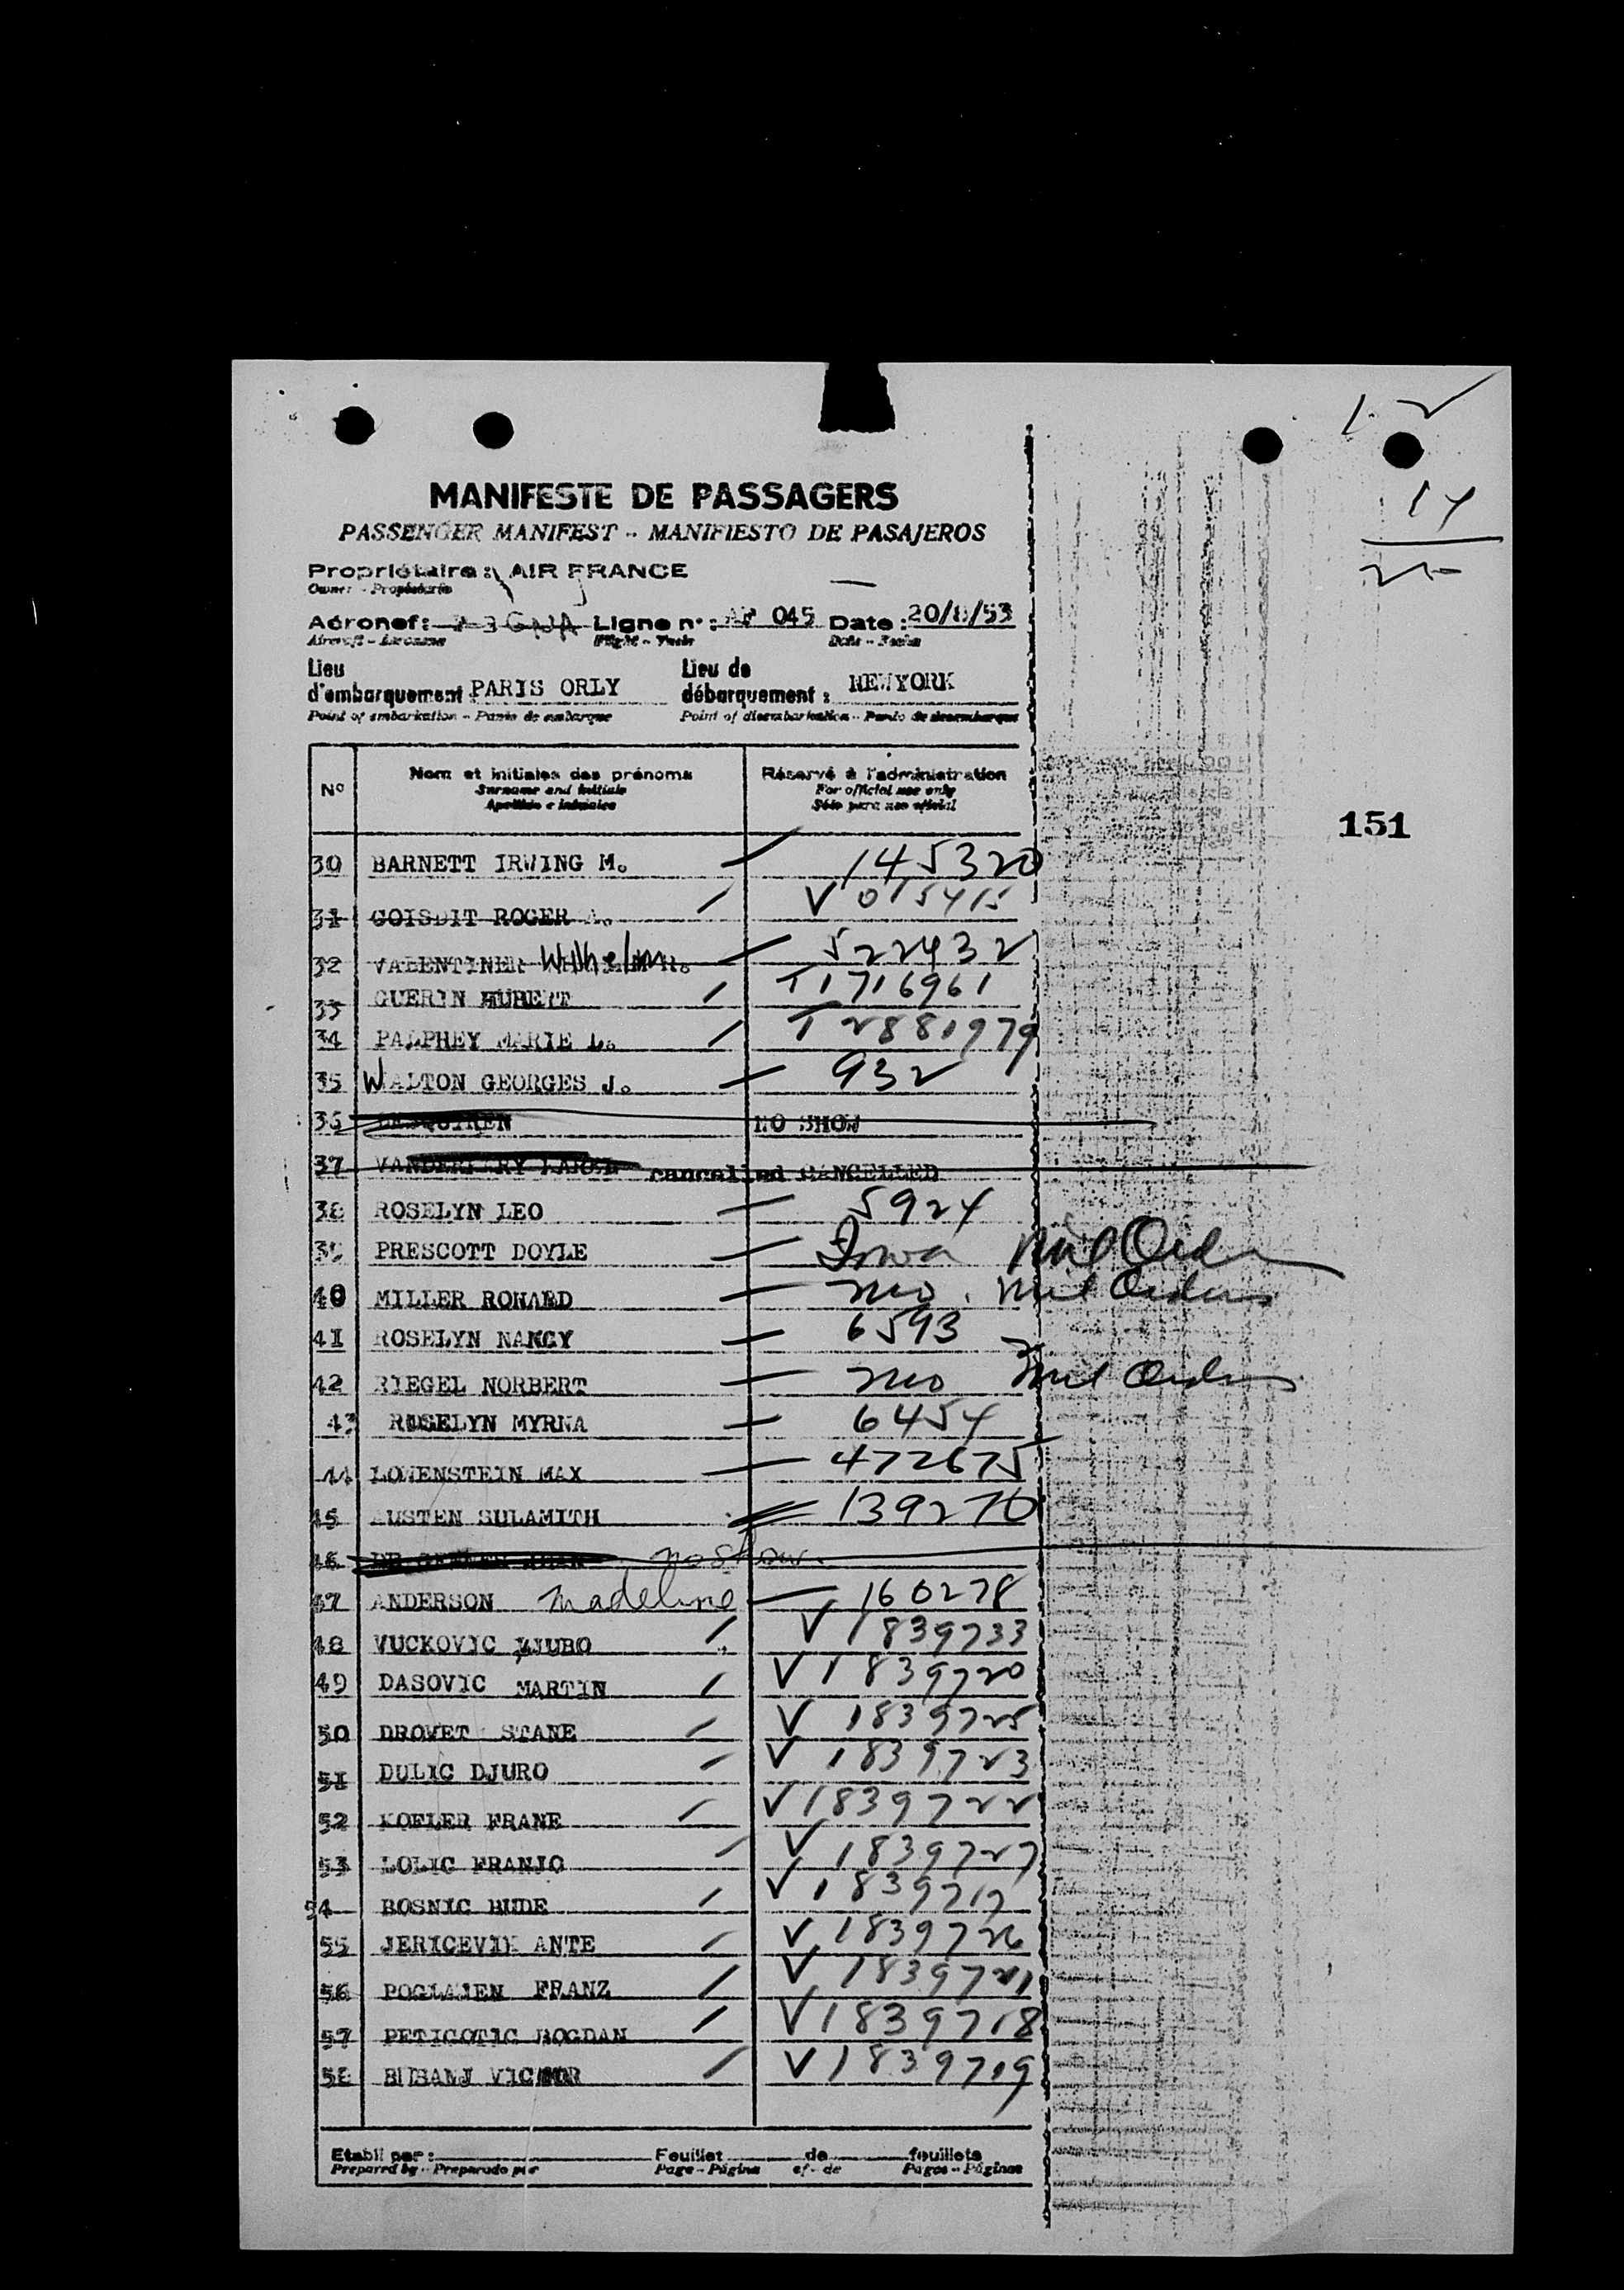 1-2
14
MANIFESTE DE PASSAGERS
PASSENGER MANIFEST - MANIFIESTO DE PASAJEROS
Propriétaire : AIR FRANCE
Owner - Propietario
Aéronef : Ligne n° : AF 045 Date : 20/8/53
Flight
Lieu d'embarquement PARIS ORLY Lieu de débarquement : NEWYORK
Point of embarkation - Punto de embarque Point of disembarkation - Punto de desembarque
N° Nom et initiales des prénoms Réservé à l'administration
Surname and initials For official use only
Apellido e iniciales Sólo para uso oficial
151
30 BARNETT IRWING M. 145320
31 GOISDIT ROGER A. V 015415
32 VALENTINER Wilhelm R. 522432
33 GUERIN HUBERT T1716961
34 PALPHEY MARIE L. T 2881979
35 WALTON GEORGES J. 932
36 NO SHOW
37 cancelled CANCELLED
38 ROSELYN LEO 5924
39 PRESCOTT DOYLE Iowa Mil Orders
40 MILLER RONALD Mo. Mil Orders
41 ROSELYN NANCY 6593
42 RIEGEL NORBERT Mo Mil Orders
43 ROSELYN MYRNA 6454
44 LOWENSTEIN MAX 472675
45 AUSTEN SULAMITH 139270
46 no show.
47 ANDERSON Madeline 160278
48 VUCKOVIC DJURO V 1839733
49 DASOVIC MARTIN V 1839720
50 DROVET STANE V 1839725
51 DULIC DJURO V 1839723
52 KOFLER FRANE V 1839722
53 LOLIC FRANJO V 1839727
54 BOSNIC BUDE V 1839717
55 JERICEVIK ANTE V 1839726
56 POGLAJEN FRANZ V 1839721
57 PETICOTIC BOGDAN V 1839718
58 BUBANJ VICTOR V 1839719
Etabli par : Feuillet de feuillets
Prepared by - Preparado por Page - Página of - de Pages - Páginas